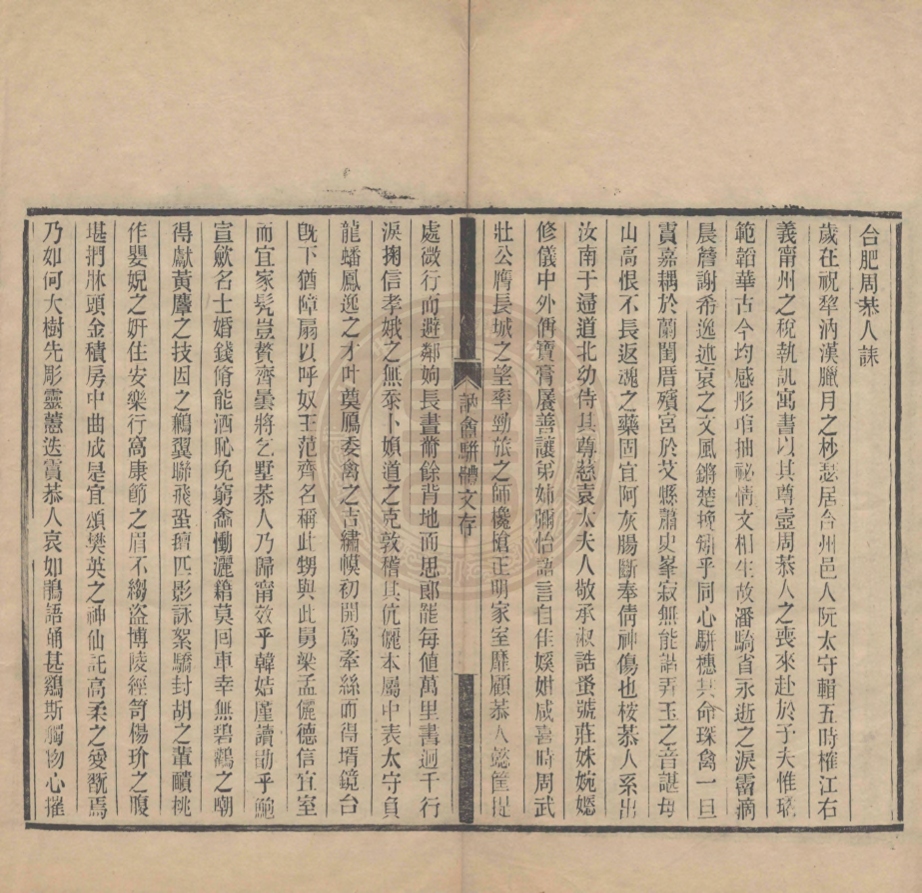 合肥周恭人誄
歲在祝犂汭漢臘月之杪瑟居台州邑人阮太守輯五時榷江右
義甯州之稅執訊寓書以其尊壼周恭人之喪來赴於予夫惟璚
範韜華古今均感彤琯抽祕情文相生故潘騎省永逝之淚霤滴
晨簷謝希逸述哀之文風鏘楚挽矧乎同心駢橞其命琛禽一旦
賈嘉耦於蘭閨厝殯宮於艾縣蕭史峯寂無能諧弄玉之音諶母
山高恨不長返魂之藥固宜阿灰腸斷奉倩神傷也桉恭人系出
汝南于逼道北幼侍其尊慈袁太夫人敬承淑誥蚤號莊姝婉嫕
修儀中外偁寶膏屢善讓弟姊彌怡語言自佳媖姏咸喜時周武
壯公膺長城之望率勁旅之師欃槍正明家室靡顧恭人懿筐得
訥盦駢體文存
處微行而避鄰姁長晝黹餘背地而思郎罷每値萬里書迴千行
淚掬信孝娥之無忝卜嬪道之克敦稽其伉儷本屬中表太守負
龍蟠鳳逸之才叶奠鴈委禽之吉繡幙初開爲牽絲而得壻鏡台
旣下猶障扇以呼奴王范齊名稱此甥與此舅梁孟儷德信宜室
而宜家髠豈贅齊曇將乞墅恭人乃歸甯效乎韓姞廑讀劼乎鮑
宣歛名士婚錢脩能洒恥免窮鱻慟灑籍莫回車幸無碧鸛之嘲
得獻黃麞之技因之鶼翼聯飛蛩𧕟匹影詠絮驕封胡之輩靧桃
作嬰婗之妍住安樂行窩康節之眉不縐盜博陵經笥楊玠之腹
堪捫牀頭金積房中曲成是宜頌樊英之神仙託高柔之愛翫焉
乃如何大樹先彫靈萱迭賈恭人哀如鵑語踊甚鷄斯觸物心摧